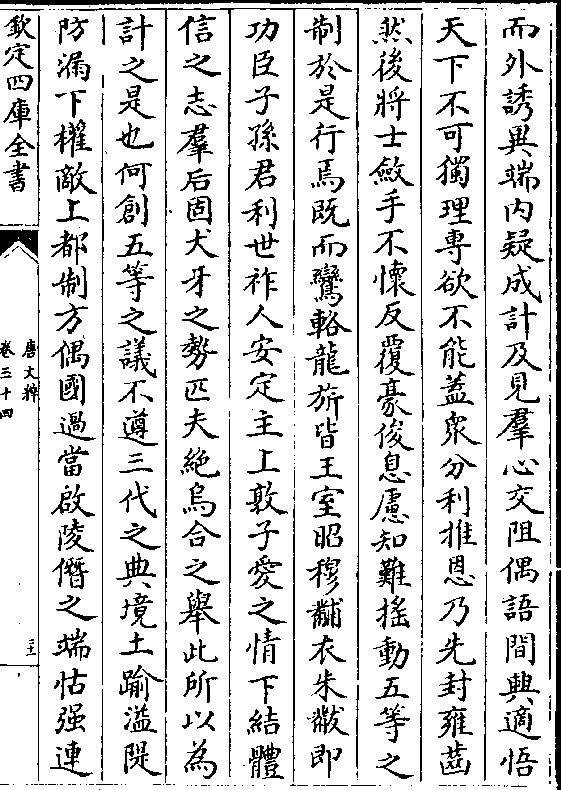 而外誘異端内疑成計及見羣心交阻偶語間興適悟
天下不可獨理専欲不能蓋衆分利推恩乃先封雍齒
然後將士斂手不懷反覆豪俊息慮知難揺動五等之
制於是行焉既而鸞輅龍旂皆王室昭穆黼衣朱黻即
功臣子孫君利世祚人安定主上敦子愛之情下結體
信之志羣后固犬牙之勢匹夫絶烏合之舉此所以為
計之是也何創五等之議不遵三代之典境土踰溢隄
防漏下櫂敵上都制方偶國過當啟陵僭之端怙强連
欽定四庫全書
唐文粹
卷三十四